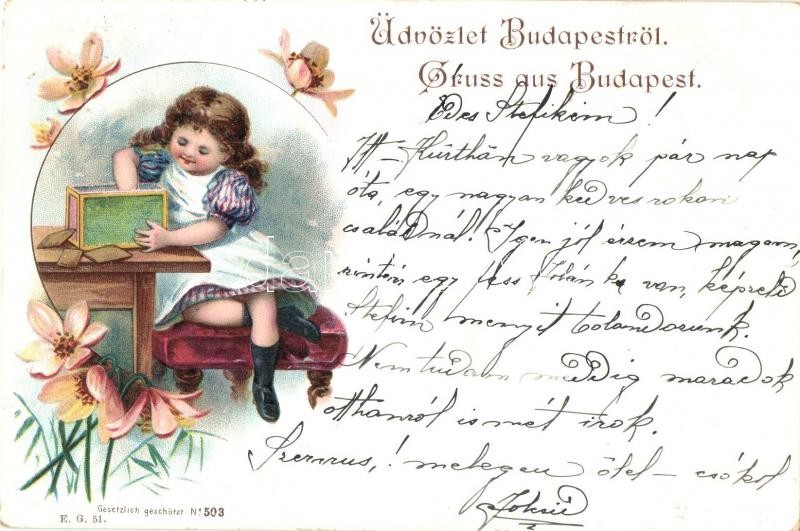 Üdvözlet Budapestről.
Gruss aus Budapest.
Édes Stefikém!
Itt Kürthön vagyok pár nap
óta, egy nagyon kedves rokon
családnál! Igen jól érzem magam,
szintén egy van, képzeld
Stefim menyit bolondozunk.
Nem tudom meddig maradok
otthonról ismét irok.
Szervus,! melegen ölel - csókol
Gesetzlich geschützt No 503
E. G. 51.